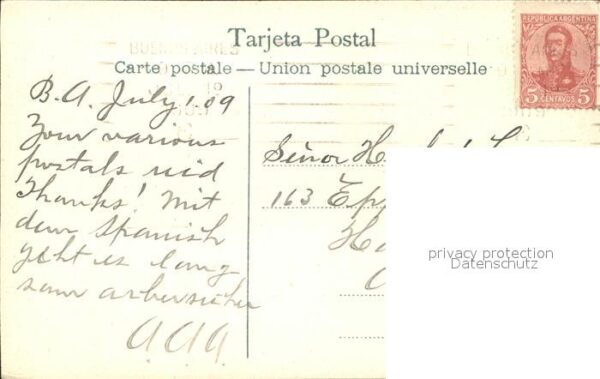 Tarjeta Postal
Carte postale — Union postale universelle
REPUBLICA ARGENTINA
5 CENTAVOS 5
BUENOS AIRES
B.A. July 1. 09
Your various
postals rec'd
Thanks! Mit
dem Spanish
geht es lang
sam aber sicher
A A A
Señor
163
privacy protection
Datenschutz